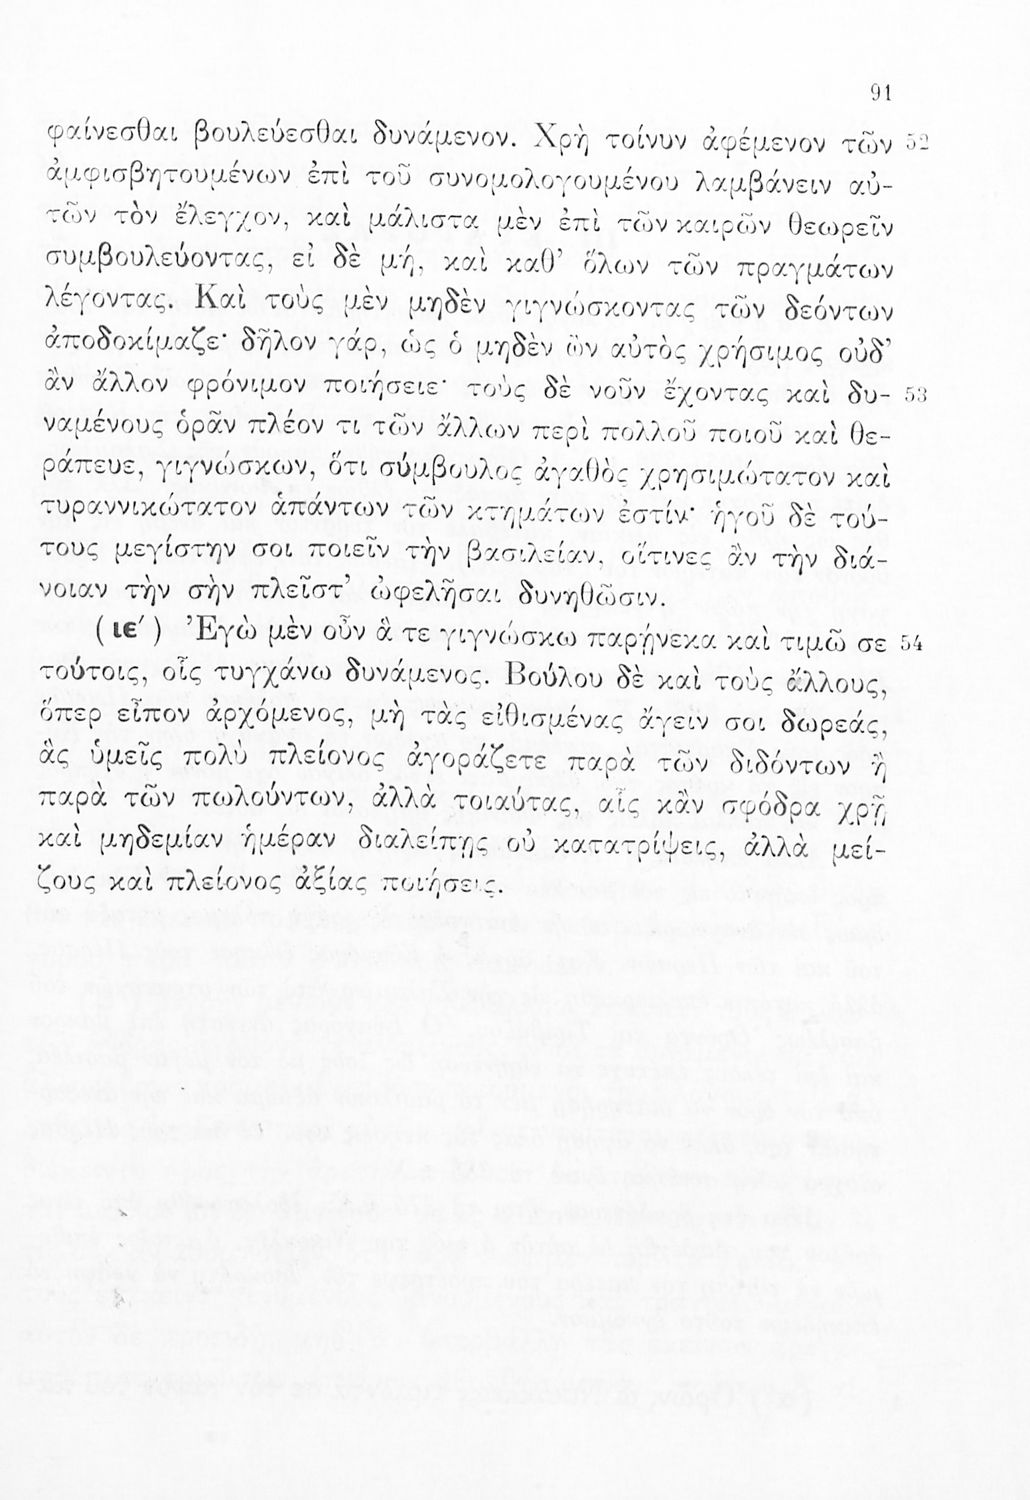 91
φαίνεσθαι βουλεύεσθαι δυνάμενον. Χρὴ τοίνυν ἀφέμενον τῶν 52
ἀμφισβητουμένων ἐπὶ τοῦ συνομολογουμένου λαμβάνειν αὐ-
τῶν τὸν ἔλεγχον, καὶ μάλιστα μὲν ἐπὶ τῶν καιρῶν θεωρεῖν
συμβουλεύοντας, εἰ δὲ μή, καὶ καθ’ ὅλων τῶν πραγμάτων
λέγοντας. Καὶ τοὺς μὲν μηδὲν γιγνώσκοντας τῶν δεόντων
ἀποδοκίμαζε· δῆλον γάρ, ὡς ὁ μηδὲν ὢν αὐτὸς χρήσιμος οὐδ’
ἂν ἄλλον φρόνιμον ποιήσειε· τοὺς δὲ νοῦν ἔχοντας καὶ δυ- 53
ναμένους ὁρᾶν πλέον τι τῶν ἄλλων περὶ πολλοῦ ποιοῦ καὶ θε-
ράπευε, γιγνώσκων, ὅτι σύμβουλος ἀγαθὸς χρησιμώτατον καὶ
τυραννικώτατον ἁπάντων τῶν κτημάτων ἐστίν· ἡγοῦ δὲ τού-
τους μεγίστην σοι ποιεῖν τὴν βασιλείαν, οἵτινες ἂν τὴν διά-
νοιαν τὴν σὴν πλεῖστ’ ὠφελῆσαι δυνηθῶσιν.
(ιε΄) Ἐγὼ μὲν οὖν ἅ τε γιγνώσκω παρῄνεκα καὶ τιμῶ σε 54
τούτοις, οἷς τυγχάνω δυνάμενος. Βούλου δὲ καὶ τοὺς ἄλλους,
ὅπερ εἶπον ἀρχόμενος, μὴ τὰς εἰθισμένας ἄγειν σοι δωρεάς,
ἃς ὑμεῖς πολὺ πλείονος ἀγοράζετε παρὰ τῶν διδόντων ἢ
παρὰ τῶν πωλούντων, ἀλλὰ τοιαύτας, αἷς κἂν σφόδρα χρῇ
καὶ μηδεμίαν ἡμέραν διαλείπῃς οὐ κατατρίψεις, ἀλλὰ μεί-
ζους καὶ πλείονος ἀξίας ποιήσεις.